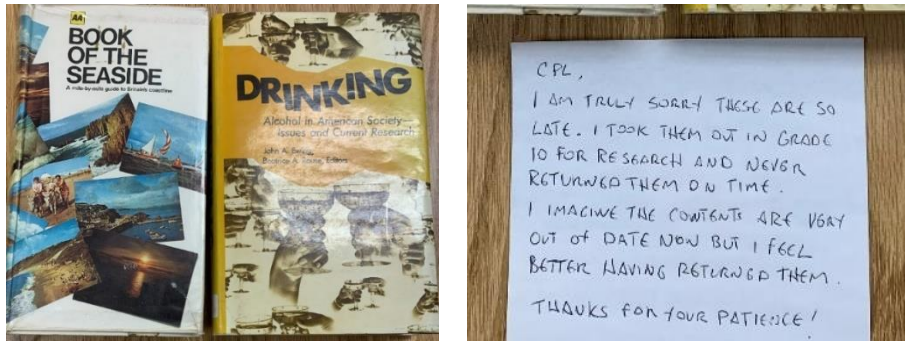 AA
BOOK
OF THE
SEASIDE
A mile-by-mile guide to Britain's coastline
DRINKING
Alcohol in American Society—
Issues and Current Research
John A.
Beatrice A. Editors
CPL,
I AM TRULY SORRY THESE ARE SO
LATE. I TOOK THEM OUT IN GRADE
10 FOR RESEARCH AND NEVER
RETURNED THEM ON TIME.
I IMAGINE THE CONTENTS ARE VERY
OUT OF DATE NOW BUT I FEEL
BETTER HAVING RETURNED THEM.
THANKS FOR YOUR PATIENCE!